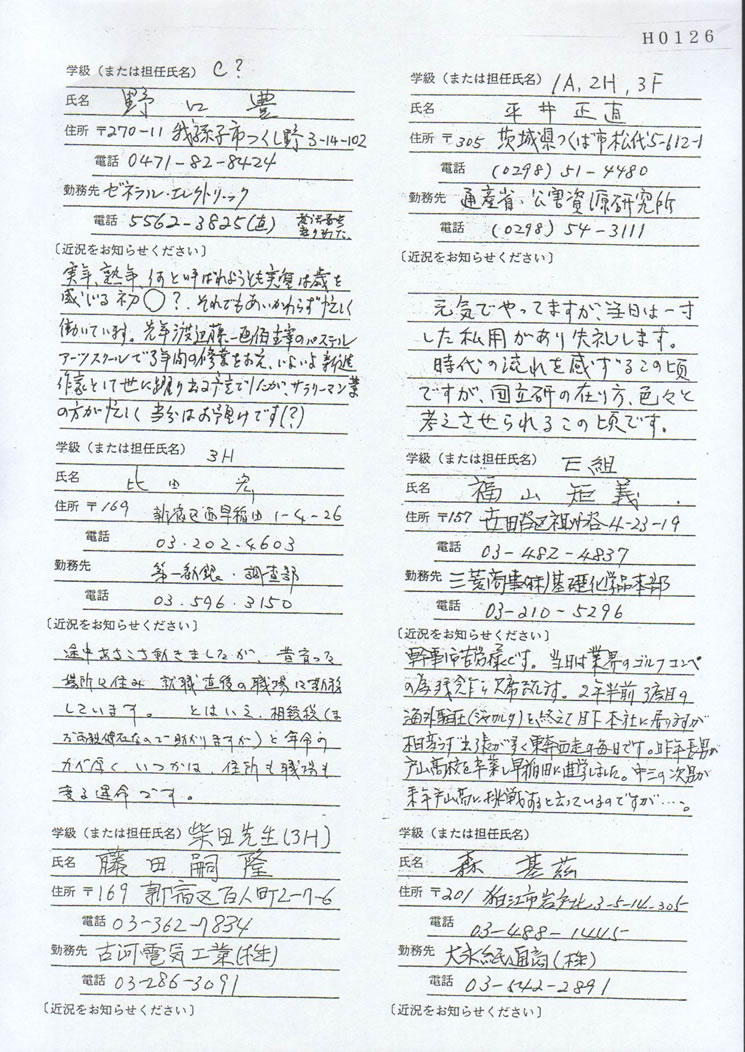 H0126
学級（または担任氏名） C？
氏名 野口 豊
住所 〒270-11 我孫子市つくし野 3-14-102
電話 0471-82-8424
勤務先 ゼネラル・エレクトリック
電話 5562-3825(直)
〔近況をお知らせください〕
実年、熟年、何と呼ばれようとも実質は歳を
感じる初〇？．それでもあいかわらず忙しく
働いています。先年渡辺藤一画伯主宰のパステル
アーツスクールで3年間の修業をおえ、いよいよ新進
作家として世に踊り出る予定でしたが、サラリーマン業
の方が忙しく当分はお預けです(？)
学級（または担任氏名） 3H
氏名 比田 宏
住所 〒169 新宿区西早稲田 1-4-26
電話 03・202・4603
勤務先 第一勧銀・調査部
電話 03・596・3150
〔近況をお知らせください〕
途中あちこち動きましたが、昔育った
場所に住み 就職直後の職場に
しています。 とはいえ、相続税(ま
だ両親健在なので助かりますが)と年令の
力が厚く いつかは、住所も職場も
変る運命です。
学級（または担任氏名） 柴田先生(3H)
氏名 藤田嗣隆
住所 〒169 新宿区百人町2-7-6
電話 03-362-7834
勤務先 古河電気工業(株)
電話 03-286-3091
〔近況をお知らせください〕
学級（または担任氏名） 1A, 2H, 3F
氏名 平井正直
住所 〒305 茨城県つくば市松代5-612-1
電話 (0298) 51-4480
勤務先 通産省・公害資源研究所
電話 (0298) 54-3111
〔近況をお知らせください〕
元気でやってますが、当日は一寸
した私用があり失礼します。
時代の流れを感ずるこの頃
ですが、国立研の在り方、色々と
考えさせられるこの頃です。
学級（または担任氏名） E組
氏名 福山矩義
住所 〒157 世田谷区祖師谷 4-23-19
電話 03-482-4837
勤務先 三菱商事(株)基礎化学品本部
電話 03-210-5296
〔近況をお知らせください〕
幹事御苦労様です。当日は業界のゴルフコンペ
の為残念乍ら欠席致します。2年半前3度目の
海外駐在(ジャカルタ)を終えて目下本社に居りますが
相変らず出張が多く東奔西走の毎日です。昨年長男が
戸山高校を卒業し早稲田に進学しました。中三の次男が
来年戸山高に挑戦すると言っているのですが…。
学級（または担任氏名）
氏名 森 基茲
住所 〒201 狛江市岩戸北 3-5-14-305
電話 03-488-1445
勤務先 大永紙通商(株)
電話 03-542-2891
〔近況をお知らせください〕